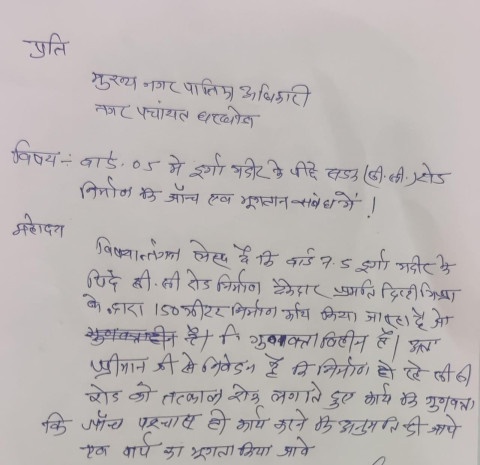 प्रति
मुख्य नगर पालिका अधिकारी
नगर पंचायत
विषय :- वार्ड. 05 में दुर्गा मंदीर के पीछे सडक (सी.सी.) रोड
निर्माण के जाँच एवं भुगतान संबंध में !
महोदय
विषयान्तंगत लेख है कि वार्ड न. 5 दुर्गा मंदीर के
पिछे सी.सी रोड निर्माण ठेकेदार
के द्वारा 150 मीटर निर्माण कार्य किया जा रहा है जो
गुणवत्ताहीन है। कि गुणवक्ता विहीन हैं। अतः
श्रीमान जी से निवेदन है कि निर्माण हो रहे सी सी
रोड को तत्काल रोक लगाते हुए कार्य के गुणवत्ता
कि जाँच पश्चात ही कार्य करने के अनुमति दी जाये
एवं कार्य का भुगता किया जावे